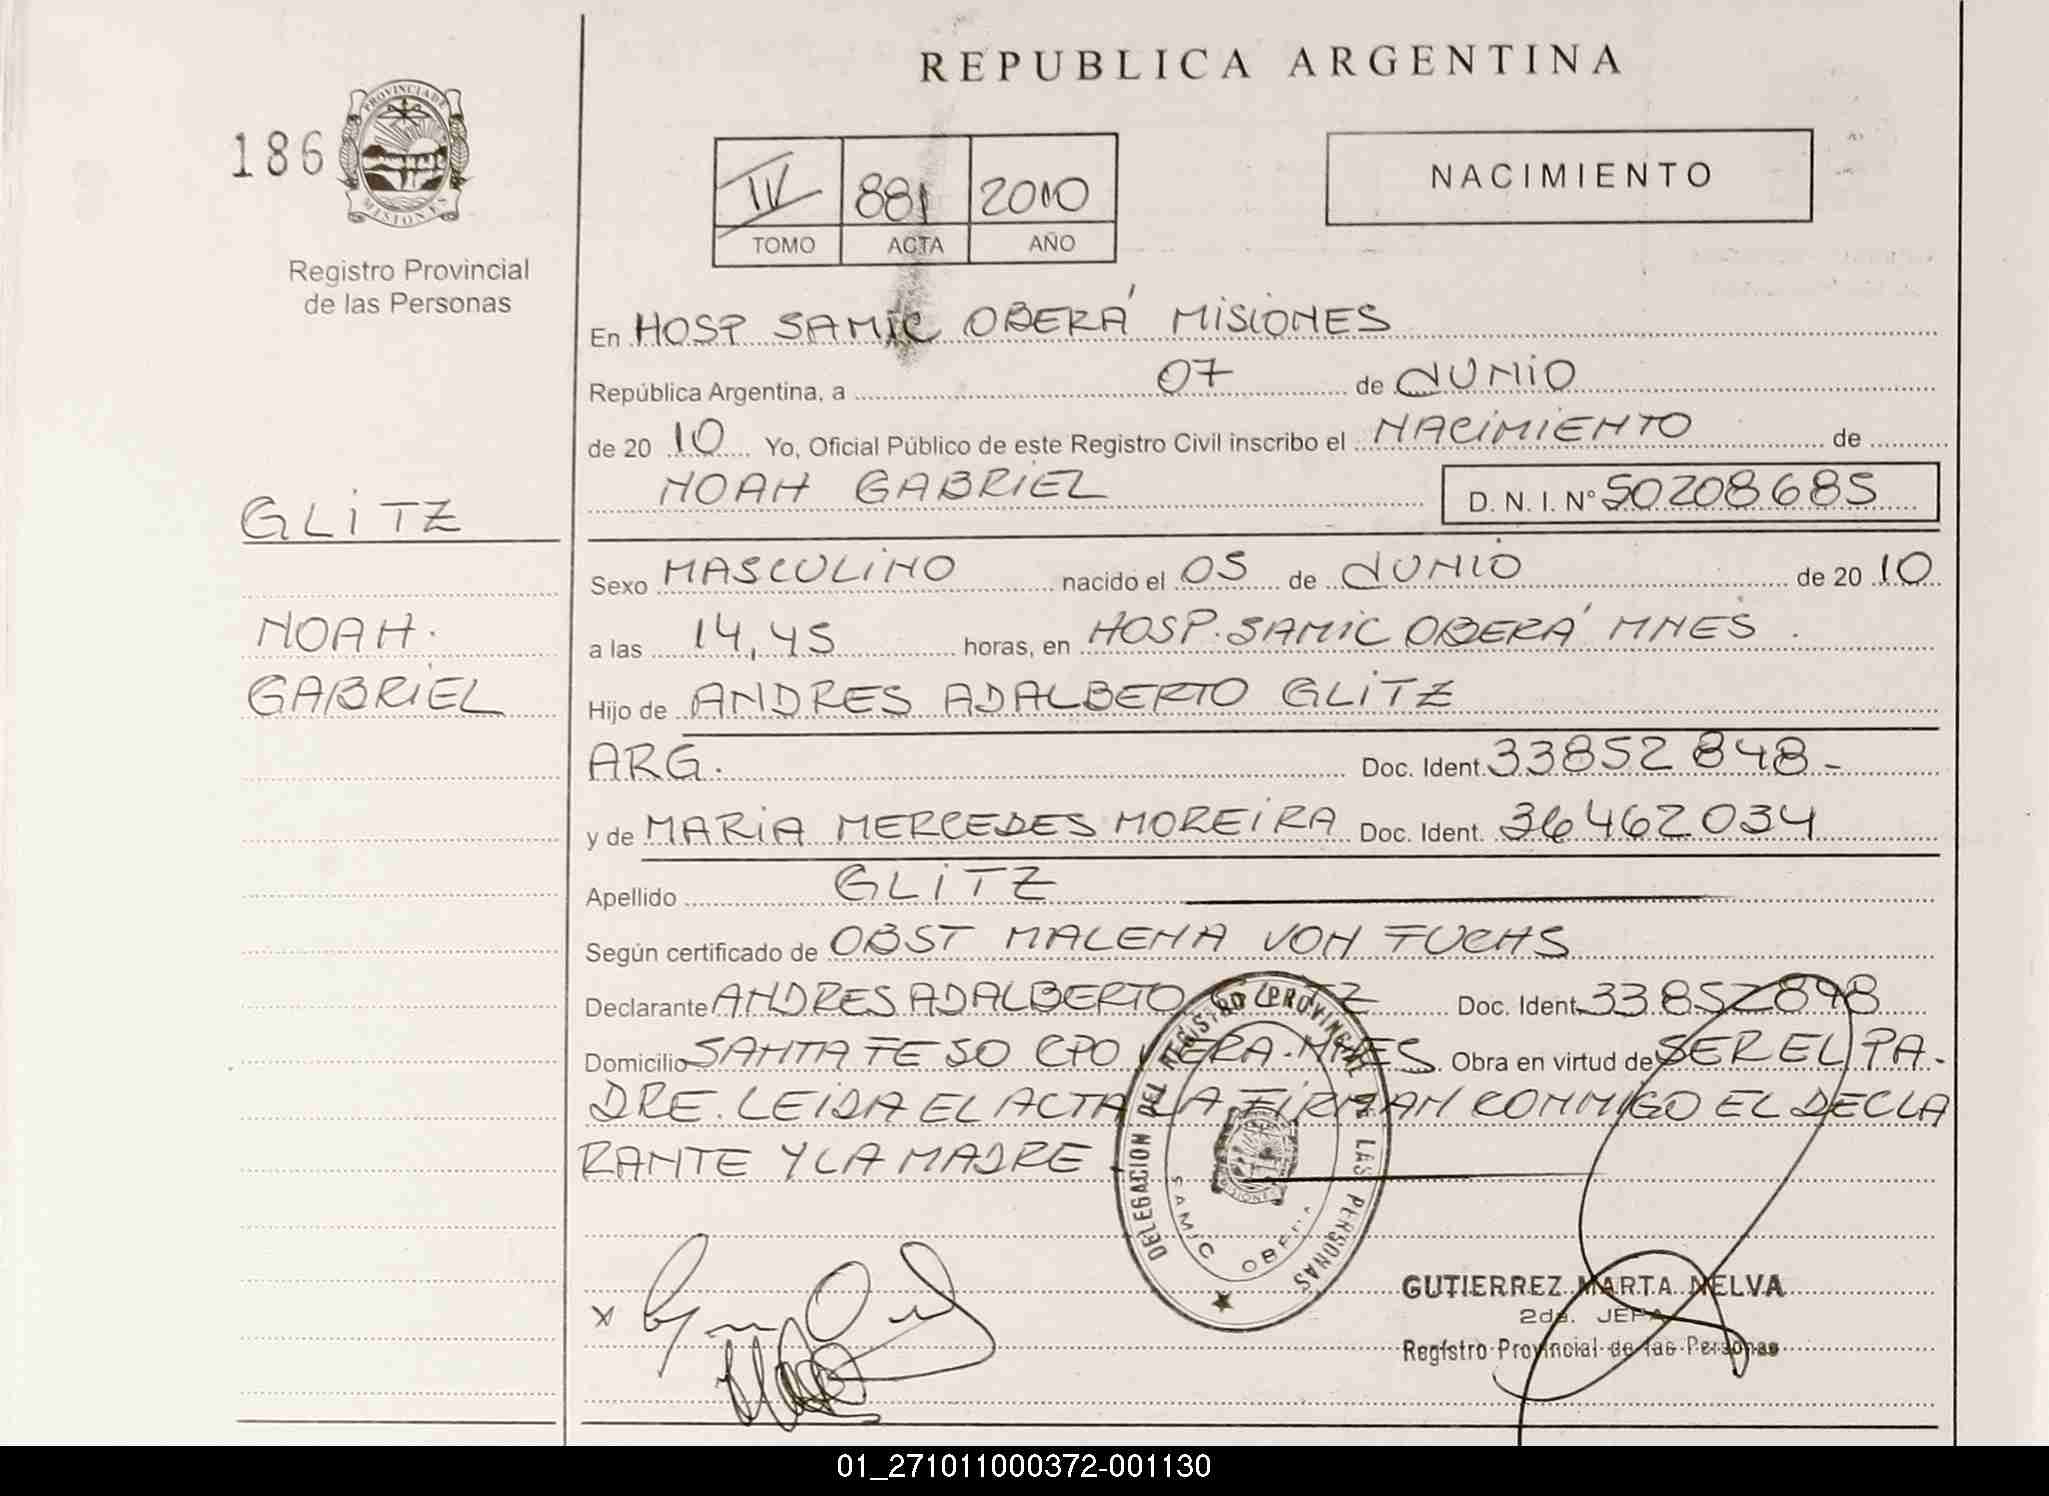 REPUBLICA ARGENTINA
186
PROVINCIA DE
MISIONES
Registro Provincial
de las Personas
IV 881 2010
TOMO ACTA AÑO
NACIMIENTO
En HOSP SAMIC OBERÁ MISIONES
República Argentina, a 07 de JUNIO
de 20 10 Yo, Oficial Público de este Registro Civil inscribo el NACIMIENTO de
NOAH GABRIEL D. N. I. N° 50208685
GLITZ
NOAH.
GABRIEL
Sexo MASCULINO nacido el 05 de JUNIO de 20 10
a las 14,45 horas, en HOSP. SAMIC OBERÁ MNES.
Hijo de ANDRES ADALBERTO GLITZ
ARG. Doc. Ident. 33852848-
y de MARIA MERCEDES MOREIRA Doc. Ident. 36462034
Apellido GLITZ
Según certificado de OBST MALENA VON FUCHS
Declarante ANDRES ADALBERTO GLITZ Doc. Ident. 33852848
Domicilio SANTA FE 50 CPO VIERA. MNES. Obra en virtud de SER EL PA-
DRE. LEIDA EL ACTA LA FIRMAN CONMIGO EL DECLA
RANTE Y LA MADRE
DELEGACION DEL REGISTRO PROVINCIAL DE LAS PERSONAS
SAMIC OBERA
MISIONES
X
GUTIERREZ MARTA NELVA
2da. JEFA
Registro Provincial de las Personas
01_271011000372-001130